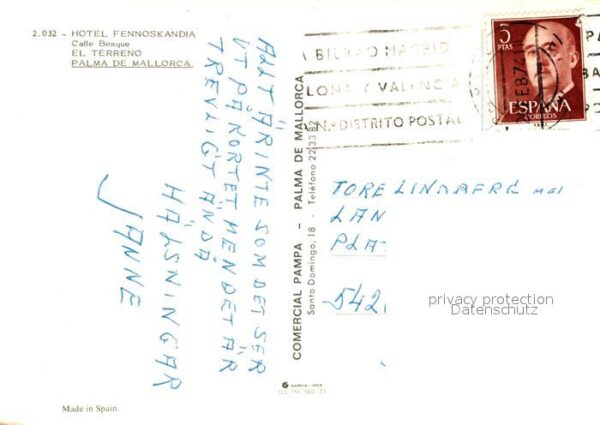 2.032 - HOTEL FENNOSKANDIA
Calle Bosque
EL TERRENO
PALMA DE MALLORCA.
ALLT ÄR INTE SOM DET SER
UT PÅ KORTET MEN DET ÄR
TREVLIGT ÄNDÅ
HÄLSNINGAR
JANNE
COMERCIAL PAMPA - PALMA DE MALLORCA
Santo Domingo, 18 - Teléfono 22 33 82
5
PTAS
ESPAÑA
CORREOS
BILBAO MADRID
LONA Y VALENCIA
DISTRITO POSTAL
TORE LINDBERG
LÄN
542.
privacy protection
Datenschutz
Made in Spain.